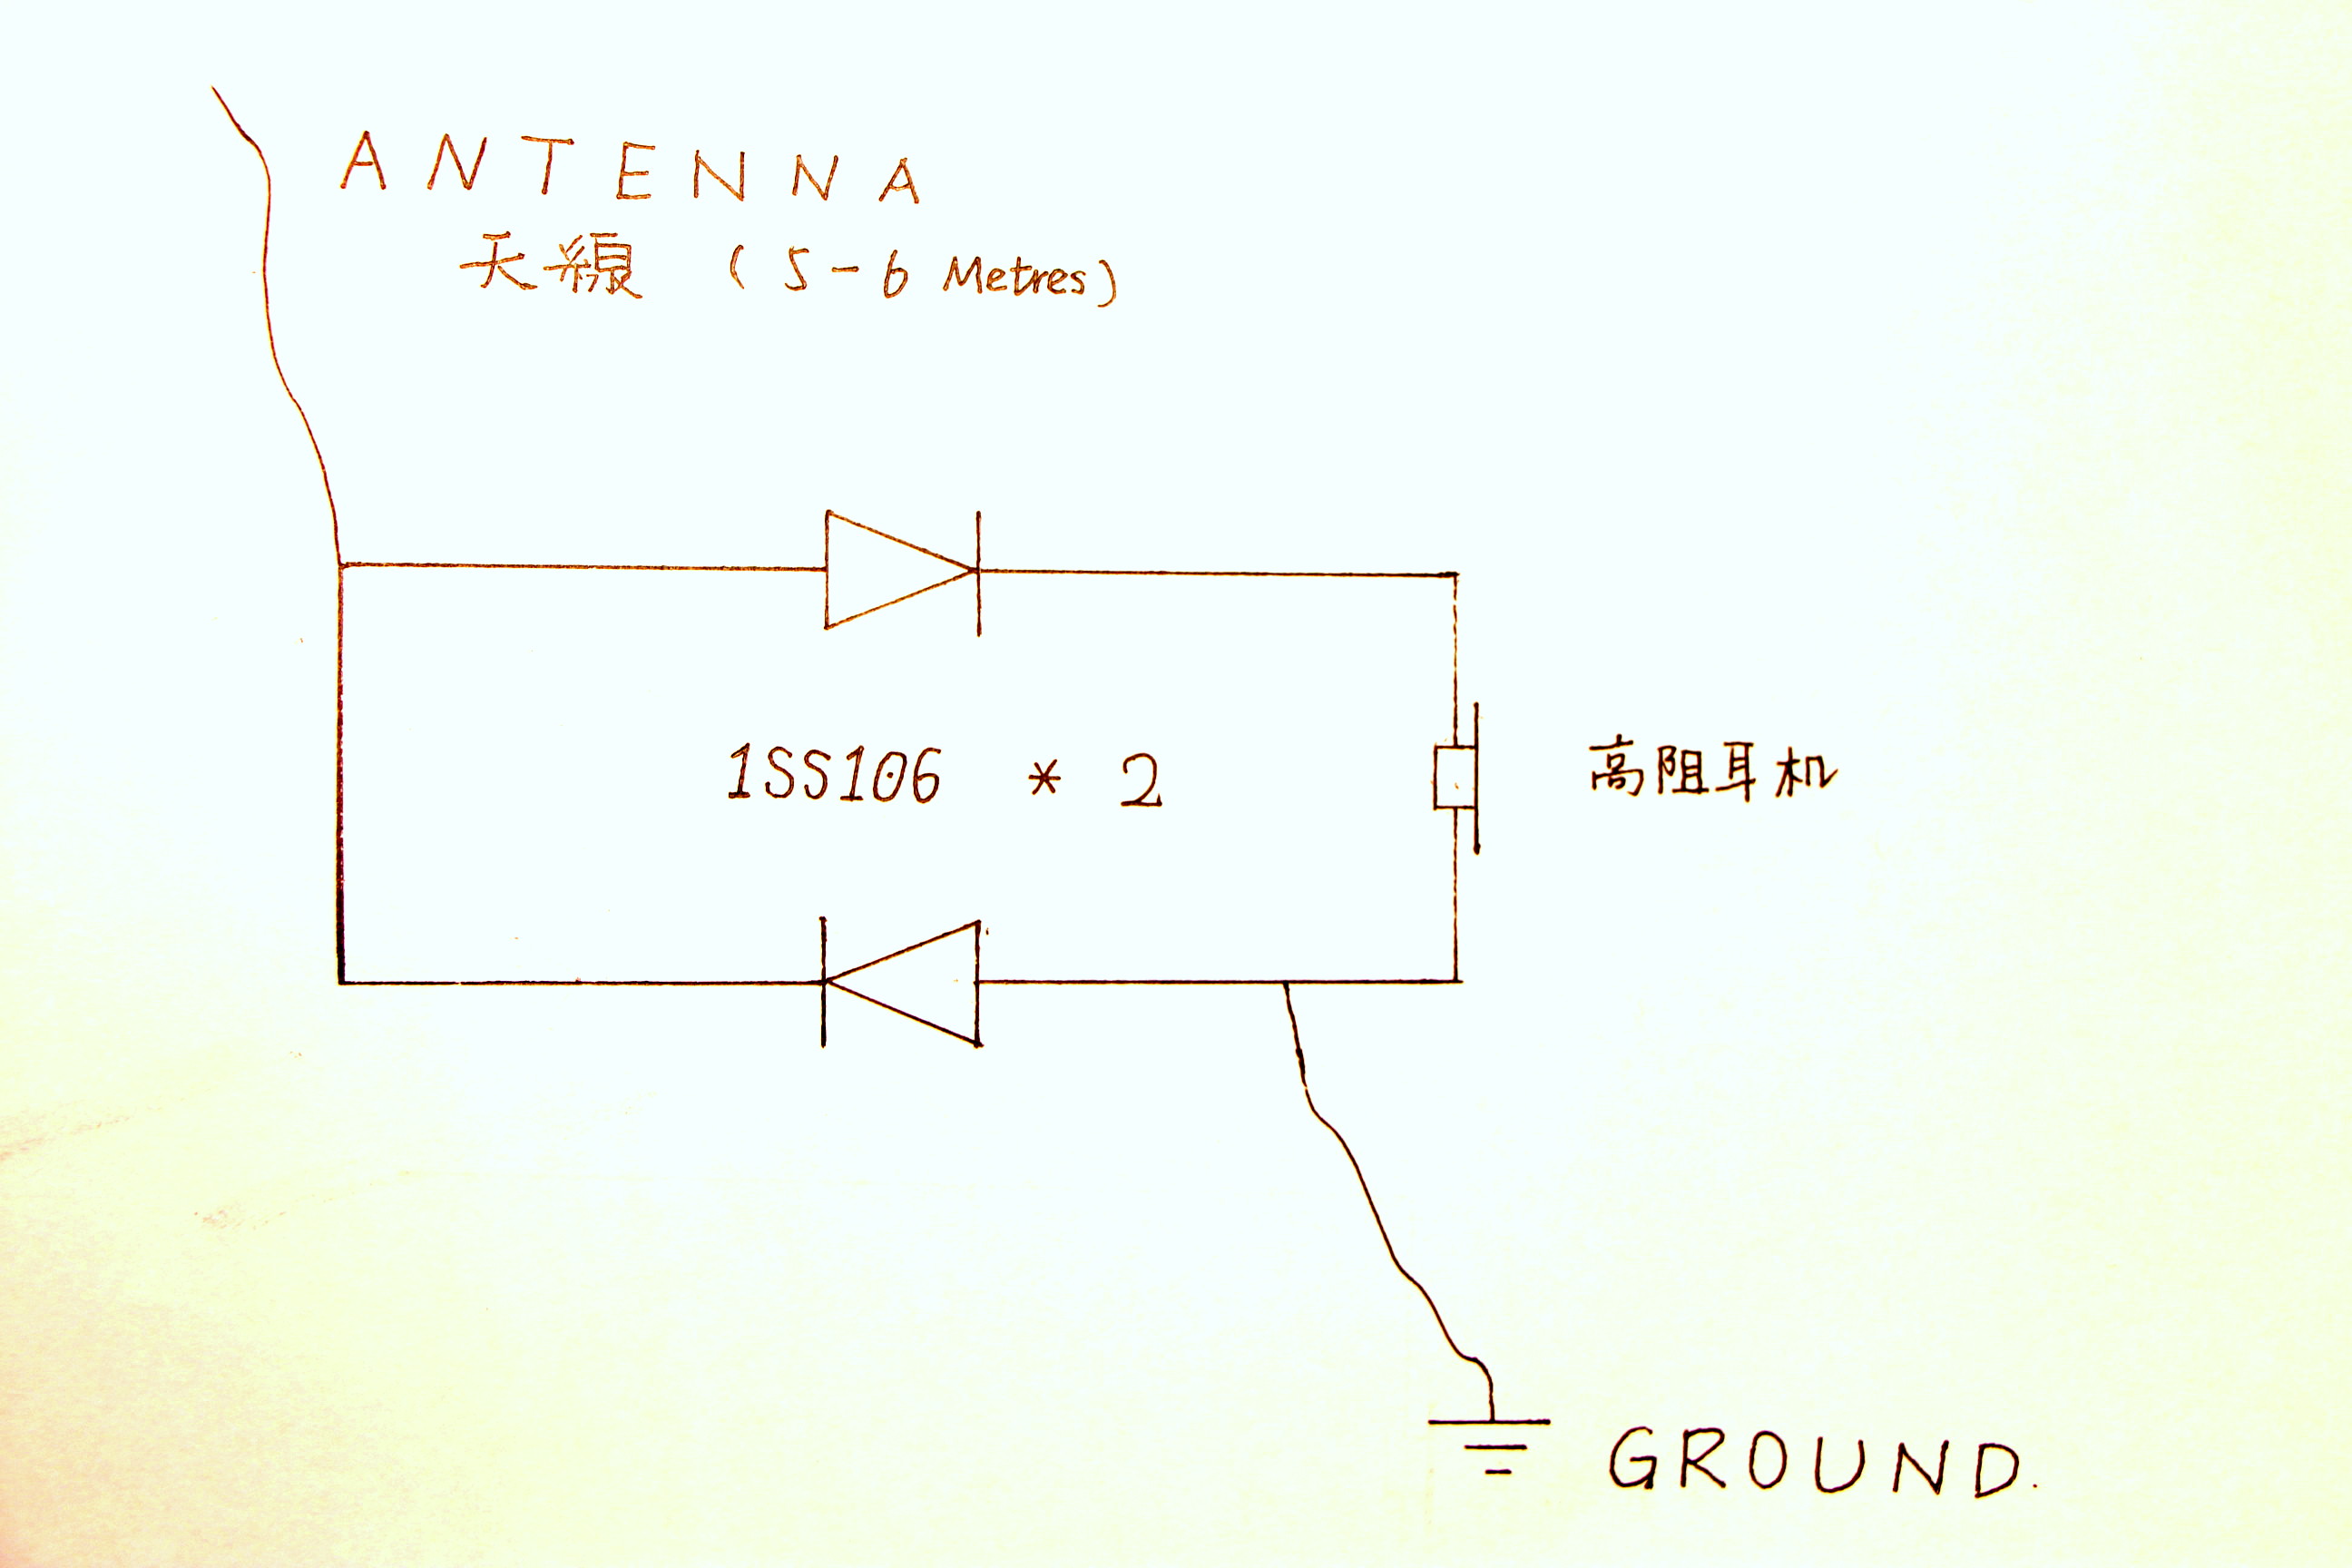 ANTENNA
天線 (5-6 Metres)
1SS106 * 2
高阻耳机
GROUND.